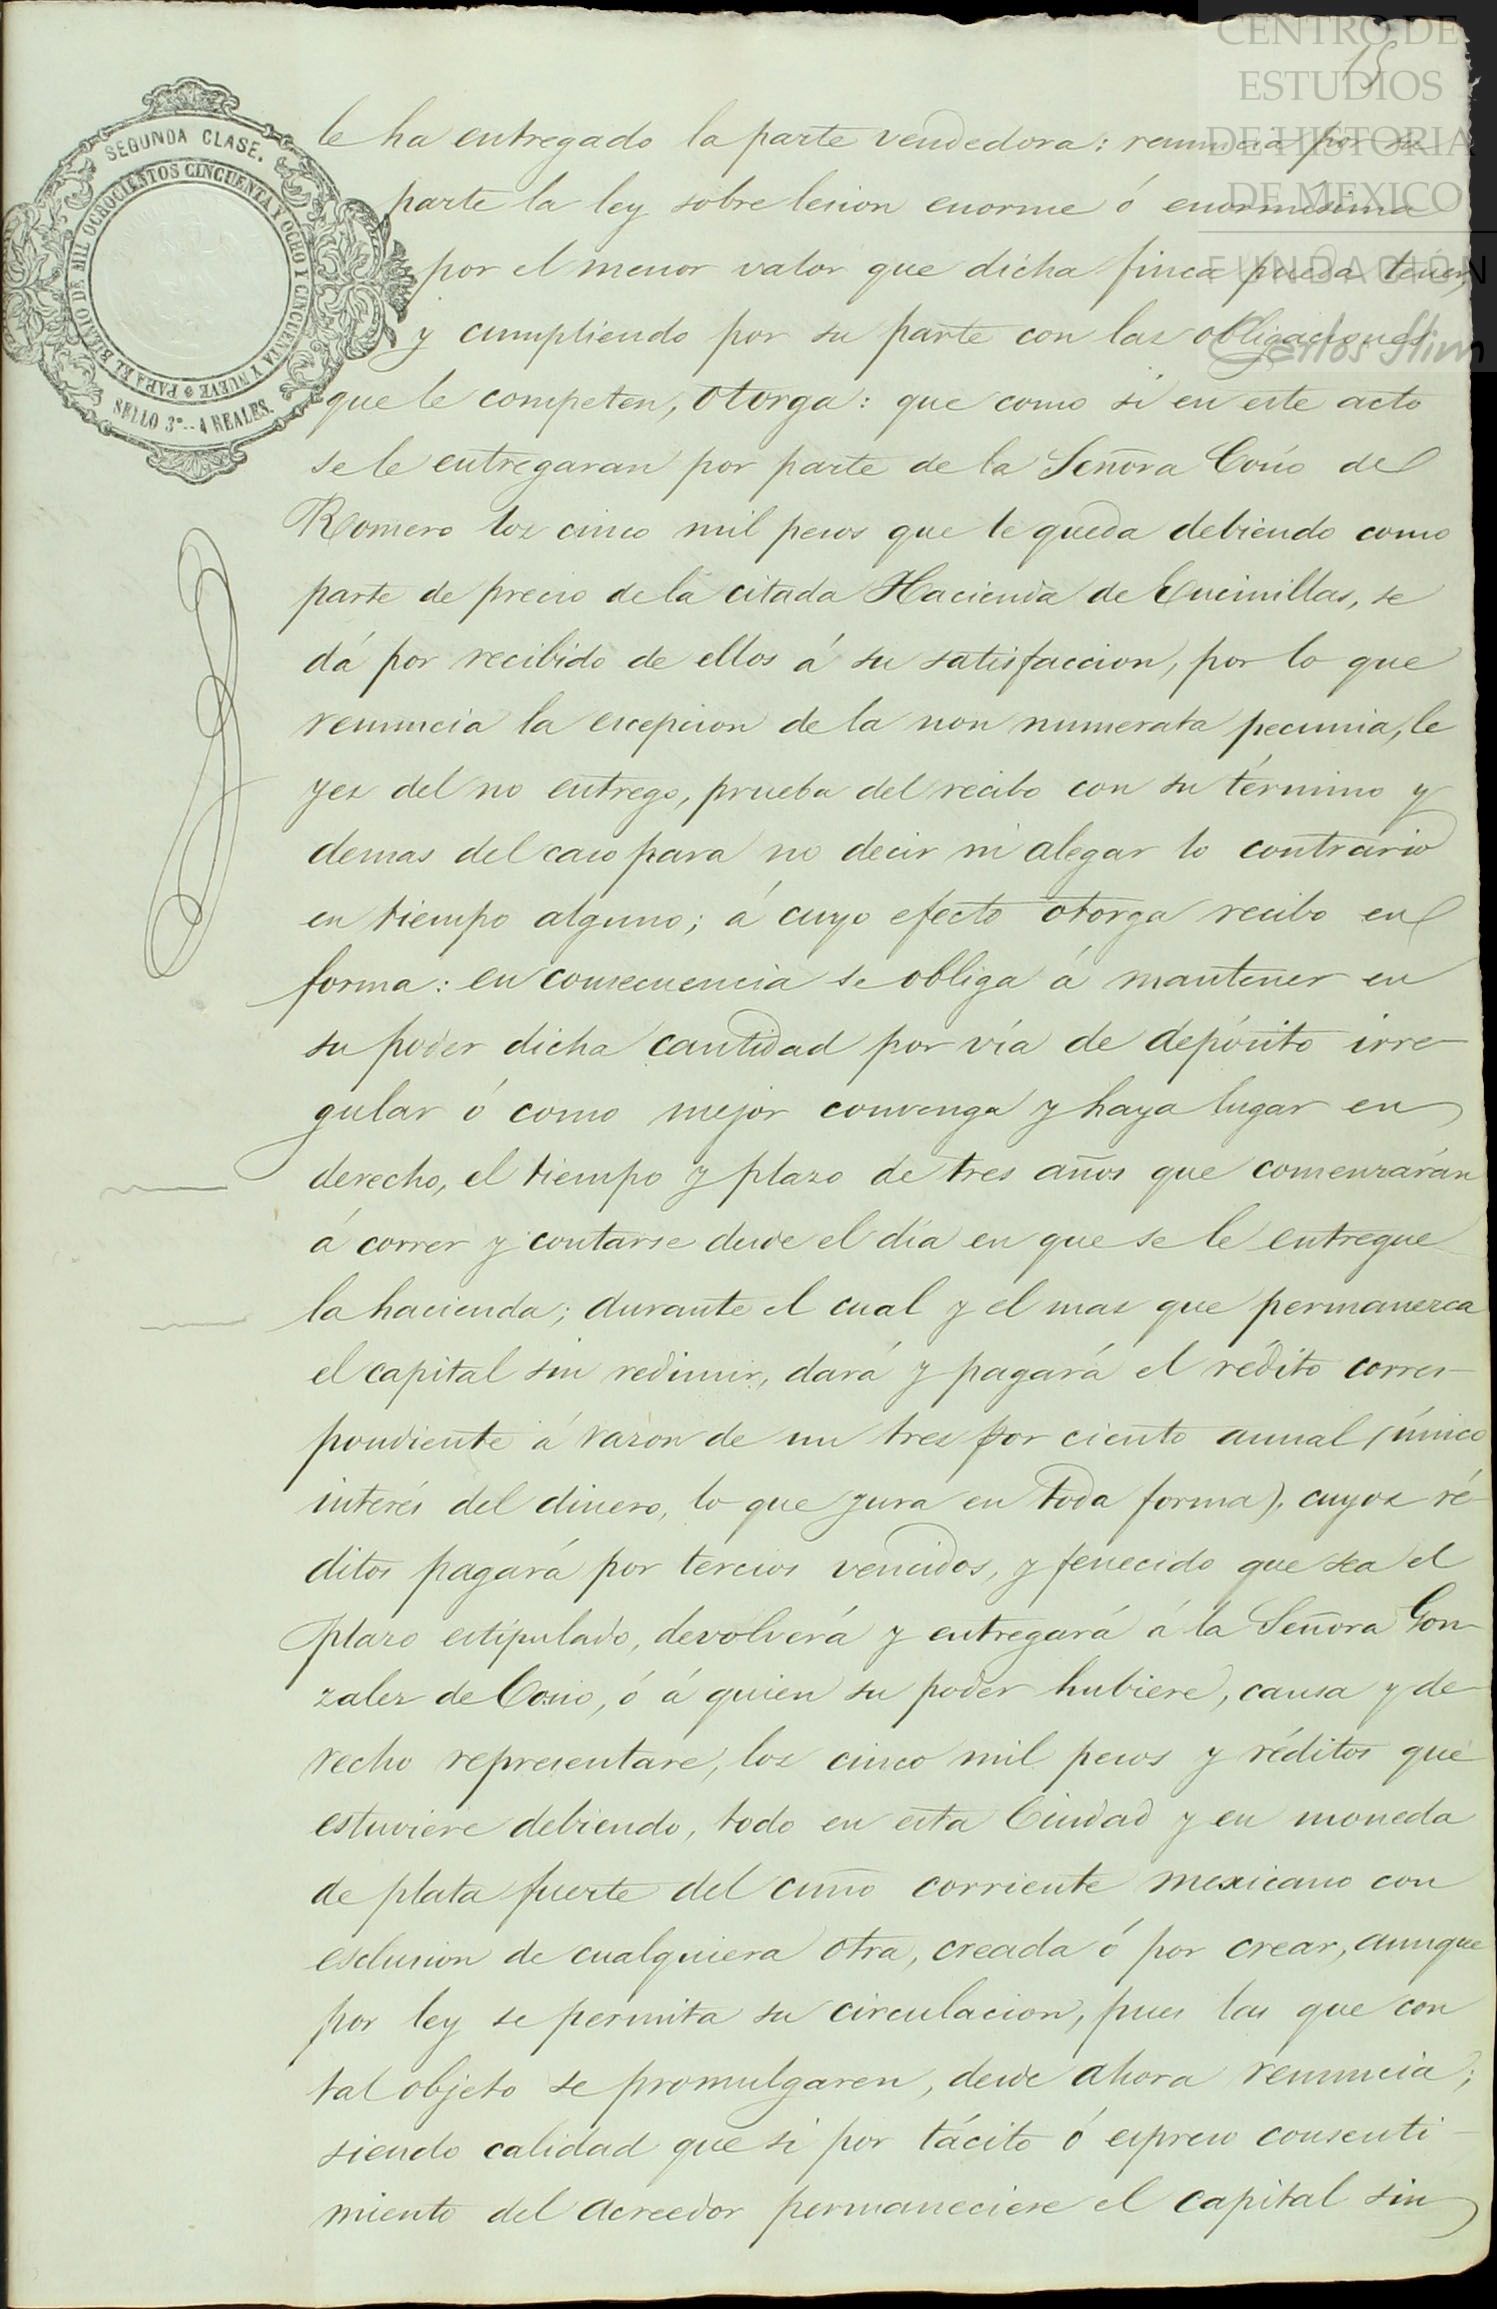 CENTRO DE
ESTUDIOS
DE HISTORIA
DE MEXICO
FUNDACIÓN
Carlos Slim
15
SEGUNDA CLASE.
PARA EL BIENIO DE MIL OCHOCIENTOS CINCUENTA Y OCHO Y CINCUENTA Y NUEVE
SELLO 3º.. 4 REALES.
le ha entregado la parte vendedora: renuncia por su
parte la ley sobre lesion enorme ó enormisima
por el menor valor que dicha finca pueda tener,
y cumpliendo por su parte con las obligaciones
que le competen, otorga: que como si en este acto
se le entregaran por parte de la Señora Cosio de
Romero los cinco mil pesos que le queda debiendo como
parte de precio de la citada Hacienda de Encinillas, se
dá por recibido de ellos á su satisfaccion, por lo que
renuncia la escepcion de la non numerata pecunia, le
yes del no entrego, prueba del recibo con su término y
demas del caso para no decir ni alegar lo contrario
en tiempo alguno; á cuyo efecto otorga recibo en
forma: en consecuencia se obliga á mantener en
su poder dicha cantidad por vía de depósito irre-
gular ó como mejor convenga y haya lugar en
derecho, el tiempo y plazo de tres años que comenzarán
á correr y contarse desde el día en que se le entregue
la hacienda; durante el cual y el mas que permanezca
el capital sin redimir, dará y pagará el rédito corres-
pondiente á razon de un tres por ciento anual (único
interés del dinero, lo que jura en toda forma), cuyos ré-
ditos pagará por tercios vencidos, y fenecido que sea el
plazo estipulado, devolverá y entregará á la Señora Gon-
zalez de Cosio, ó á quien su poder hubiere, causa y de-
recho representare, los cinco mil pesos y réditos que
estuviere debiendo, todo en esta Ciudad y en moneda
de plata fuerte del cuño corriente mexicano con
esclusion de cualquiera otra, creada ó por crear, aunque
por ley se permita su circulacion, pues las que con
tal objeto se promulgaren, desde ahora renuncia;
siendo calidad que si por tácito ó espreso consenti-
miento del acreedor permaneciese el capital sin